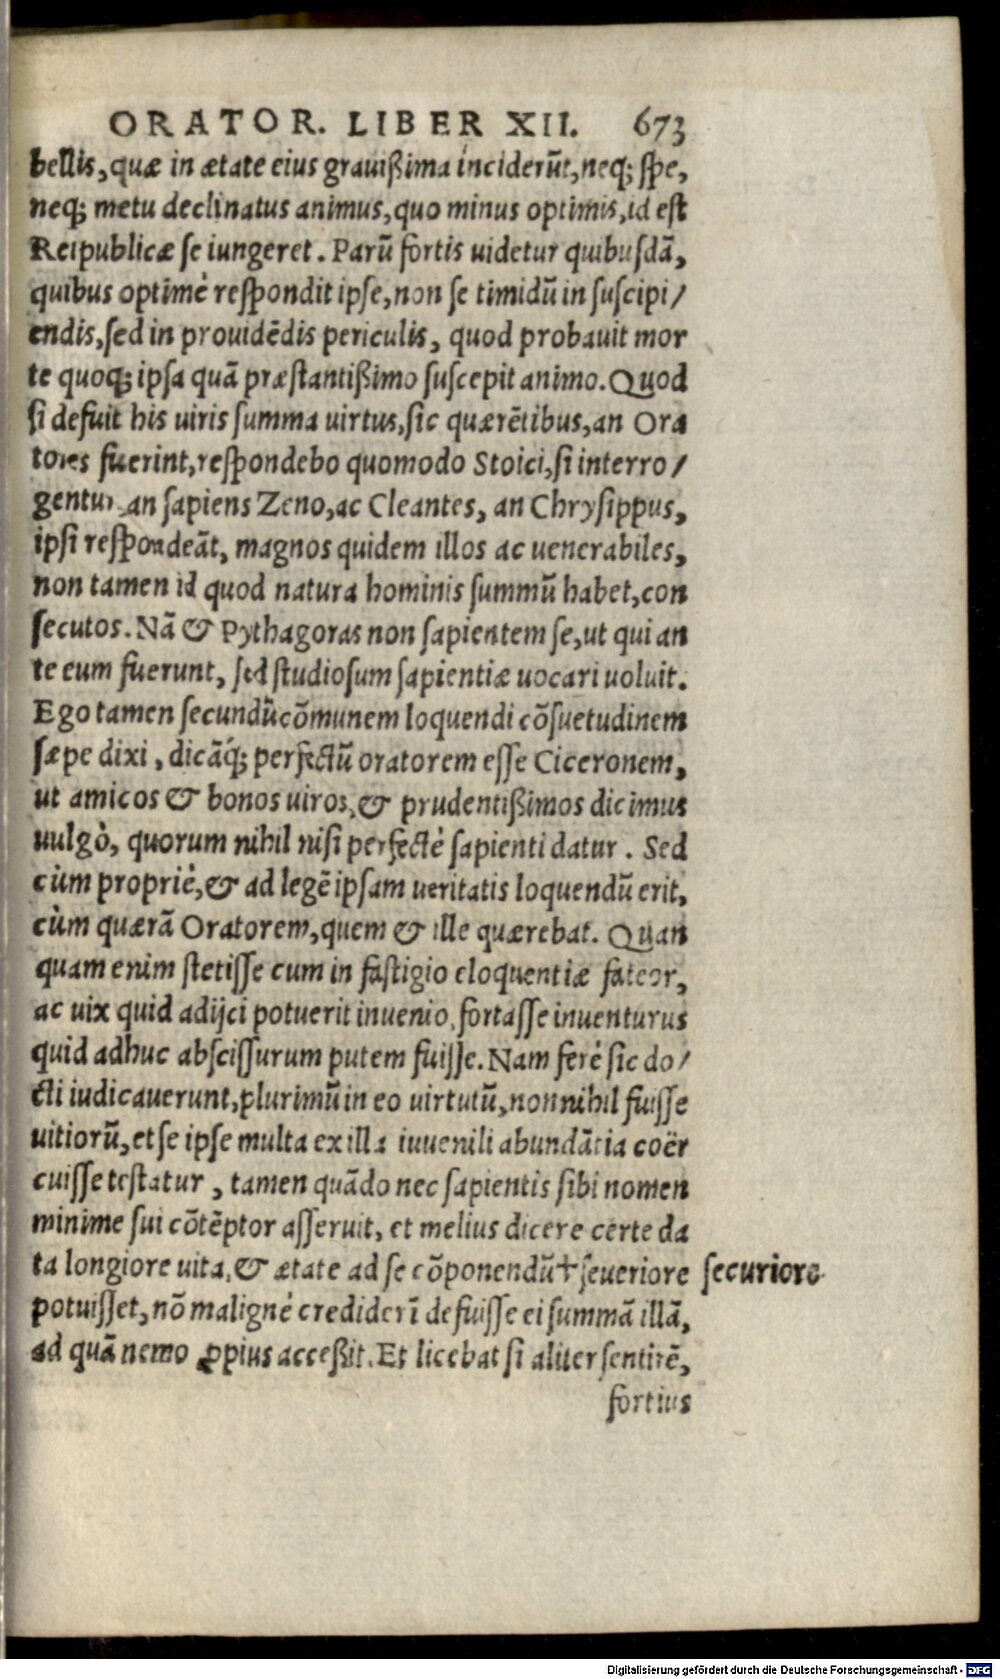 ORATOR. LIBER XII. 673
bellis, quæ in ætate eius grauißima inciderūt, neq; spe,
neq; metu declinatus animus, quo minus optimis, id est
Reipublicæ se iungeret. Parū fortis uidetur quibusdā,
quibus optimè respondit ipse, non se timidū in suscipi/
endis, sed in prouidēdis periculis, quod probauit mor
te quoq; ipsa quā præstantißimo suscepit animo. Quod
si defuit his uiris summa uirtus, sic quærētibus, an Ora
tores fuerint, respondebo quomodo Stoici, si interro/
gentur an sapiens Zeno, ac Cleantes, an Chrysippus,
ipsi respondeāt, magnos quidem illos ac uenerabiles,
non tamen id quod natura hominis summū habet, con
secutos. Nā & Pythagoras non sapientem se, ut qui an
te eum fuerunt, sed studiosum sapientiæ uocari uoluit.
Ego tamen secundū cōmunem loquendi cōsuetudinem
sæpe dixi, dicāq́; perfectū oratorem esse Ciceronem,
ut amicos & bonos uiros, & prudentißimos dicimus
uulgò, quorum nihil nisi perfectè sapienti datur. Sed
cùm propriè, & ad legē ipsam ueritatis loquendū erit,
cùm quærā Oratorem, quem & ille quærebat. Quan
quam enim stetisse eum in fastigio eloquentiæ fateor,
ac uix quid adijci potuerit inuenio, fortasse inuenturus
quid adhuc abscissurum putem fuisse. Nam ferè sic do/
cti iudicauerunt, plurimū in eo uirtutū, nonnihil fuisse
uitiorū, et se ipse multa ex illa iuuenili abundātia coër
cuisse testatur, tamen quādo nec sapientis sibi nomen
minime sui cōtēptor asseruit, et melius dicere certe da
ta longiore uita, & ætate ad se cōponendū † seueriore securiore
potuisset, nō malignè crediderī defuisse ei summā illā,
ad quā nemo ꝓpius acceßit. Et licebat si aliter sentirē,
fortius
Digitalisierung gefördert durch die Deutsche Forschungsgemeinschaft - DFG